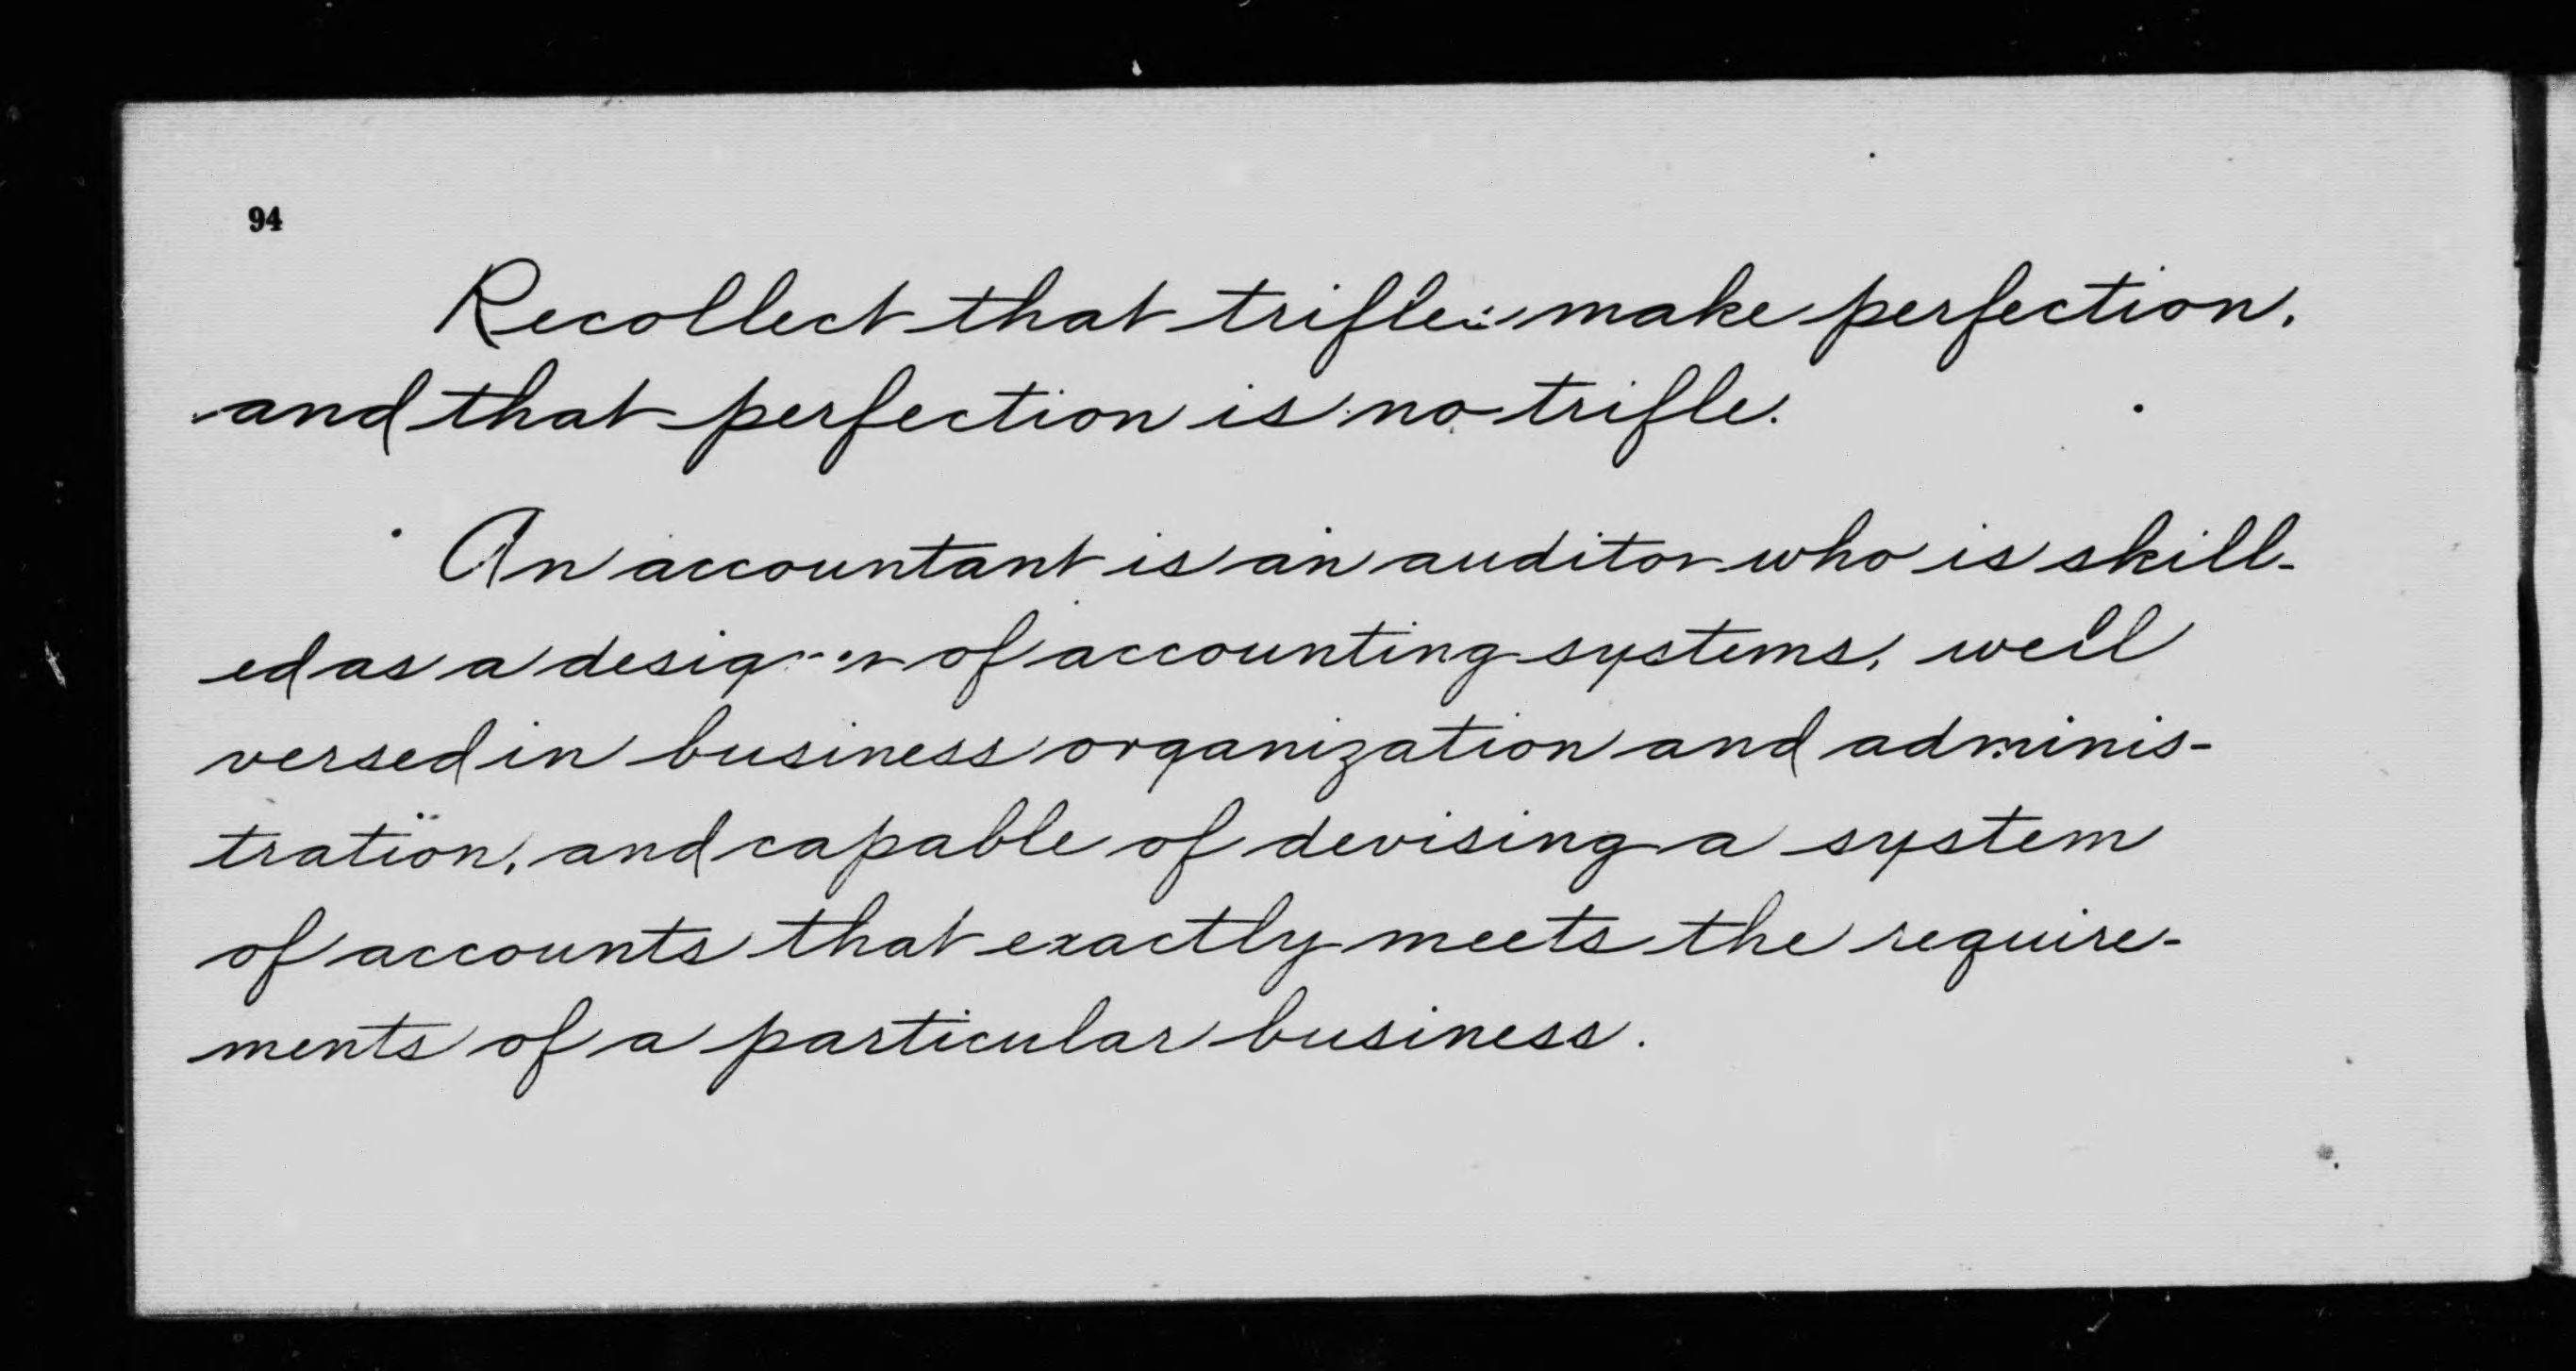 94
Recollect that trifles make perfection,
and that perfection is no trifle.
An accountant is an auditor who is skill-
ed as a designer of accounting systems, well
versed in business organization and adminis-
tration, and capable of devising a system
of accounts that exactly meets the require-
ments of a particular business.